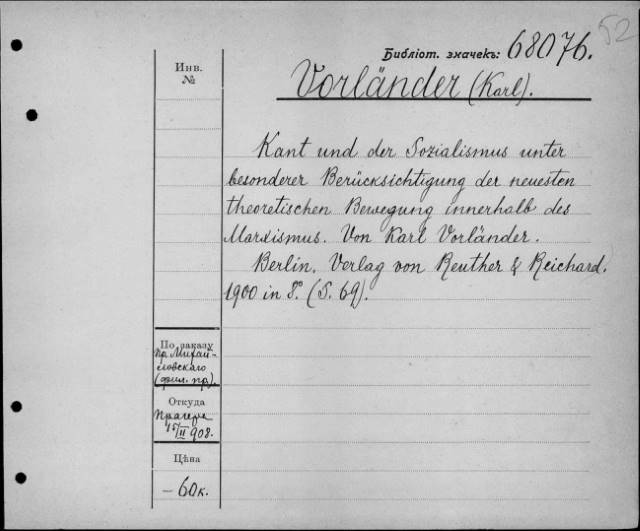 52
Библіот. значекъ: 68076.
Инв.
№
Vorländer (Karl).
Kant und der Sozialismus unter
besonderer Berücksichtigung der neuesten
theoretischen Bewegung innerhalb des
Marxismus. Von Karl Vorländer.
Berlin. Verlag von Reuther & Reichard.
1900 in 8°. (S. 69).
По заказу
пр. Михай-
ловскаго
(фил. пр.).
Откуда
Прагера
15/II 908.
Цѣна
– 60 к.